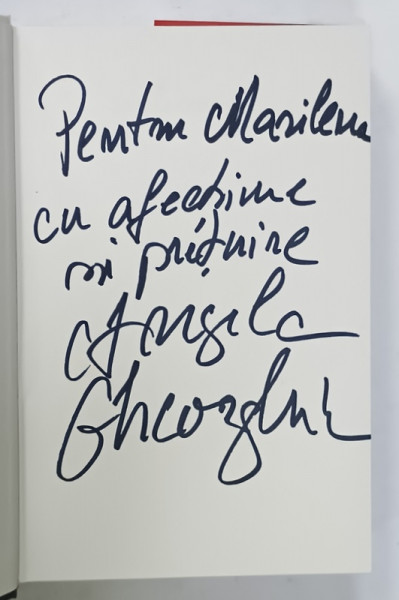 Pentru Marilena
cu afecțiune
și prețuire
Angela
Gheorghiu